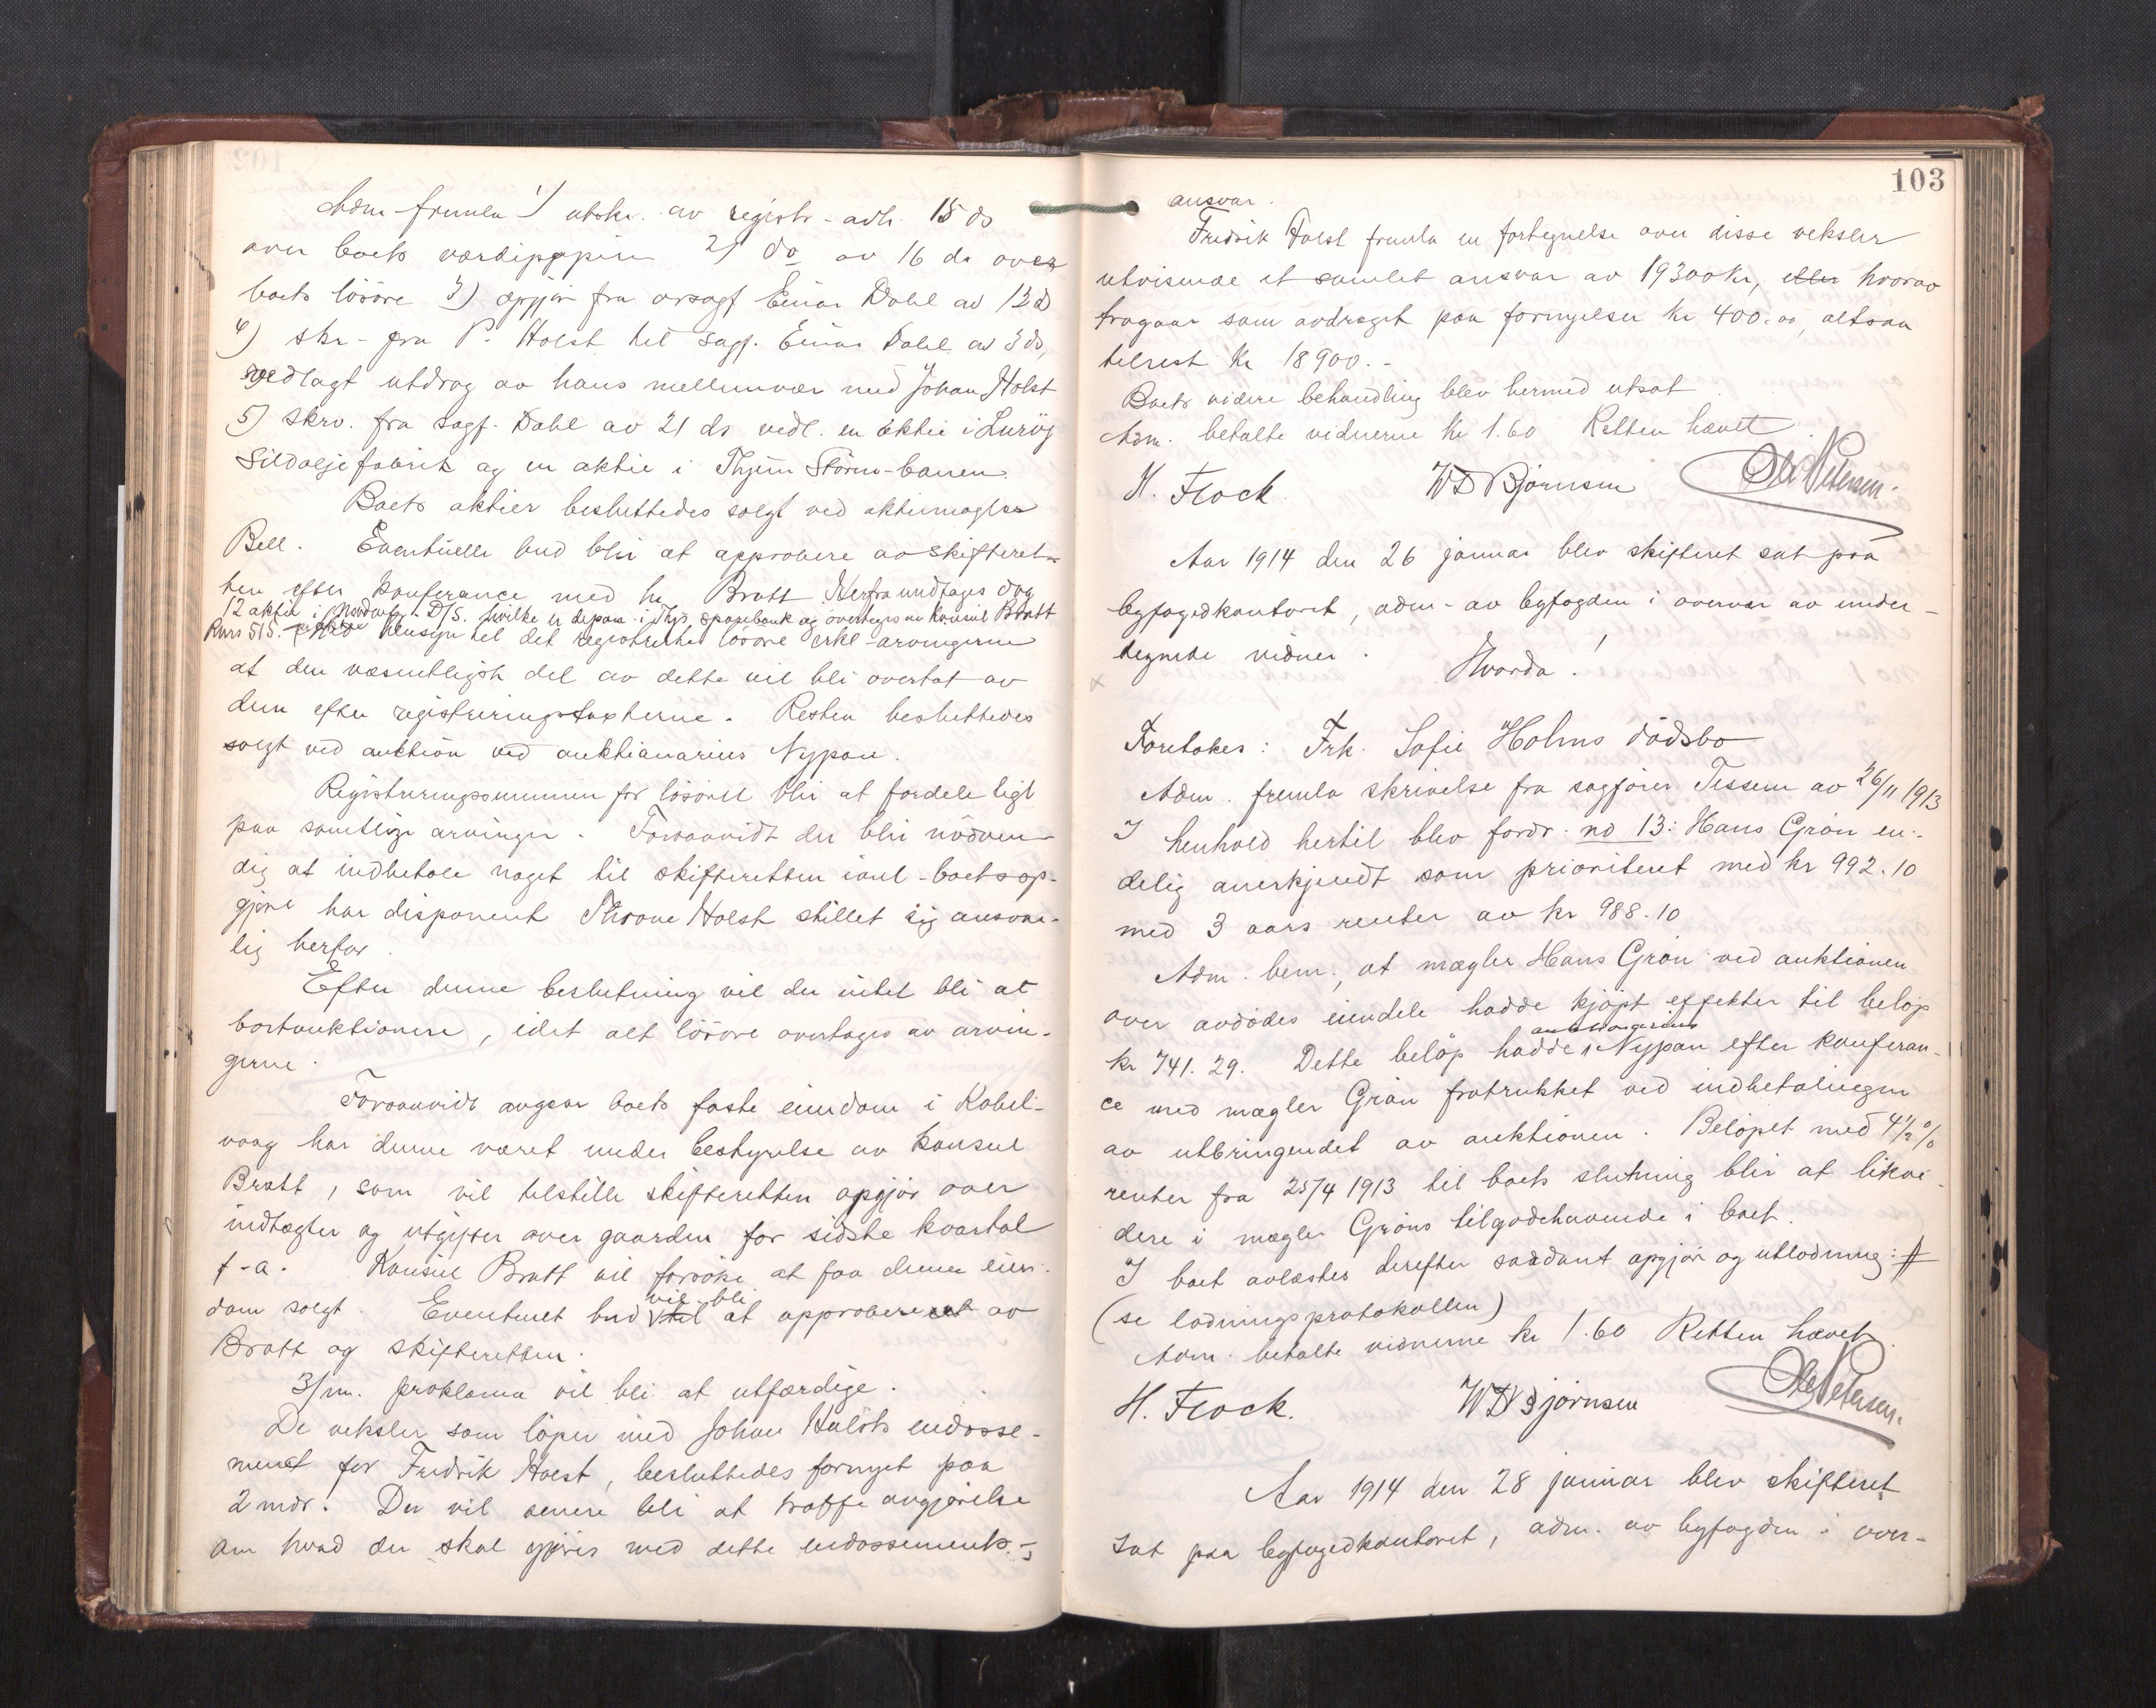 Adm fremla 1) utskr. av registr-adk. 15 ds
over boets værdipapirer 2) do av 16 ds over
boets lösöre 3) opgjör fra orsagf Einar Dahl av 12 ds
4) skr- fra P. Holst til sagf. Einar Dahl av 3 ds,
vedlagt utdrag av hans mellemvær med Johan Holst
5) skrv. fra sagf. Dahl av 21 ds vedl. en aktie i Luröy
Sildoljefabrik og en aktie i Thjem Stören-banen.
Boets aktier besluttedes solgt ved aktiemægler
Bell. Eventuelle bud blir at approbere av skifteret-
ten efter konferance med hr Bratt. Herfra undtages dog
12 aktier i Nordenfj. D/S. hvilke er depon. i Thjs sparebank og overtages av konsul Bratt
Kurs 515. Med hensyn til det registrerte lösöre erkl-arvingerne
at den væsentligste del av dette vil bli overtat av
dem efter registreringstaxterne. Resten besluttedes
solgt ved auktion ved auktionarius Nypan.
Registreringssummen for lösöret blir at fordele ligt
paa samtlige arvinger. Forsaavidt der blir nödven-
dig at indbetale noget til skifteretten ianl-boets op-
gjör har disponent Throne Holst stillet sig ansvar-
lig herfor.
Efter denne beslutning vil der intet bli at
bortauktionere, idet alt lösöre overtages av arvin-
gerne.
Forsaavidt angaar boets faste eiendom i Kabel-
vaag har denne været under bestyrelse av konsul
Bratt, som vil tilstille skifteretten opgjör over
indtægter og utgifter over gaarden for sidste kvartal
f-a. Konsul Bratt vil forsöke at faa denne eien-
dom solgt. Eventuelt bud vil bli at approbere av
Bratt og skifteretten.
3/m. proklama vil bli at utfærdige.
De veksler som löper med Johan Holsts endosse-
ment for Fredrik Holst, besluttedes fornyet paa
2 mdr. Der vil senere bli at træffe avgjörelse
om hvad der skal gjöres med dette endossements-
103
ansvar.
Fredrik Holst fremla en fortegnelse over disse veksler
utvisende et samlet ansvar av 19300 kr, efter hvorav
fragaar som avdraget paa fornyelser kr 400.00, altsaa
tilrest kr 18900.-
Boets videre behandling blev hermed utsat.
Adm. betalte vidnerne kr 1.60 Retten hævet.
H. Flock. WD Bjørnsen Ole Petersen.
Aar 1914 den 26 januar blev skifteret sat paa
byfogedkontoret, adm- av byfogden i overvær av under-
tegnede vidner. Hvorda!
Foretokes: Frk. Sofie Holms dödsbo
Adm. fremla skrivelse fra sagförer Tessem av 26/11 1913
I henhold hertil blev fordr. no 13: Hans Grön en-
delig anerkjendt som prioritert med kr 992.10
med 3 aars renter av kr 988.10
Adm. bem., at mægler Hans Grön ved auktionen
over avdödes eiendele hadde kjöpt effekter til beløp
auktionarius
kr 741.29. Dette beløp hadde Nypan efter konferan-
ce med mægler Grön fratrukket ved indbetalingen
av utbringendet av auktionen. Beløpet med 4½%
renter fra 25/4 1913 til boets slutning blir at likvi-
dere i mægler Gröns tilgodehavende i boet.
I boet avlæstes derefter saadant opgjør og utlodning: #
(se lodningsprotokollen)
Adm. betalte vidnerne kr 1.60 Retten hævet.
H. Flock. WD Bjørnsen Ole Petersen.
Aar 1914 den 28 januar blev skifteret
sat paa byfogedkontoret, adm. av byfogden i over-